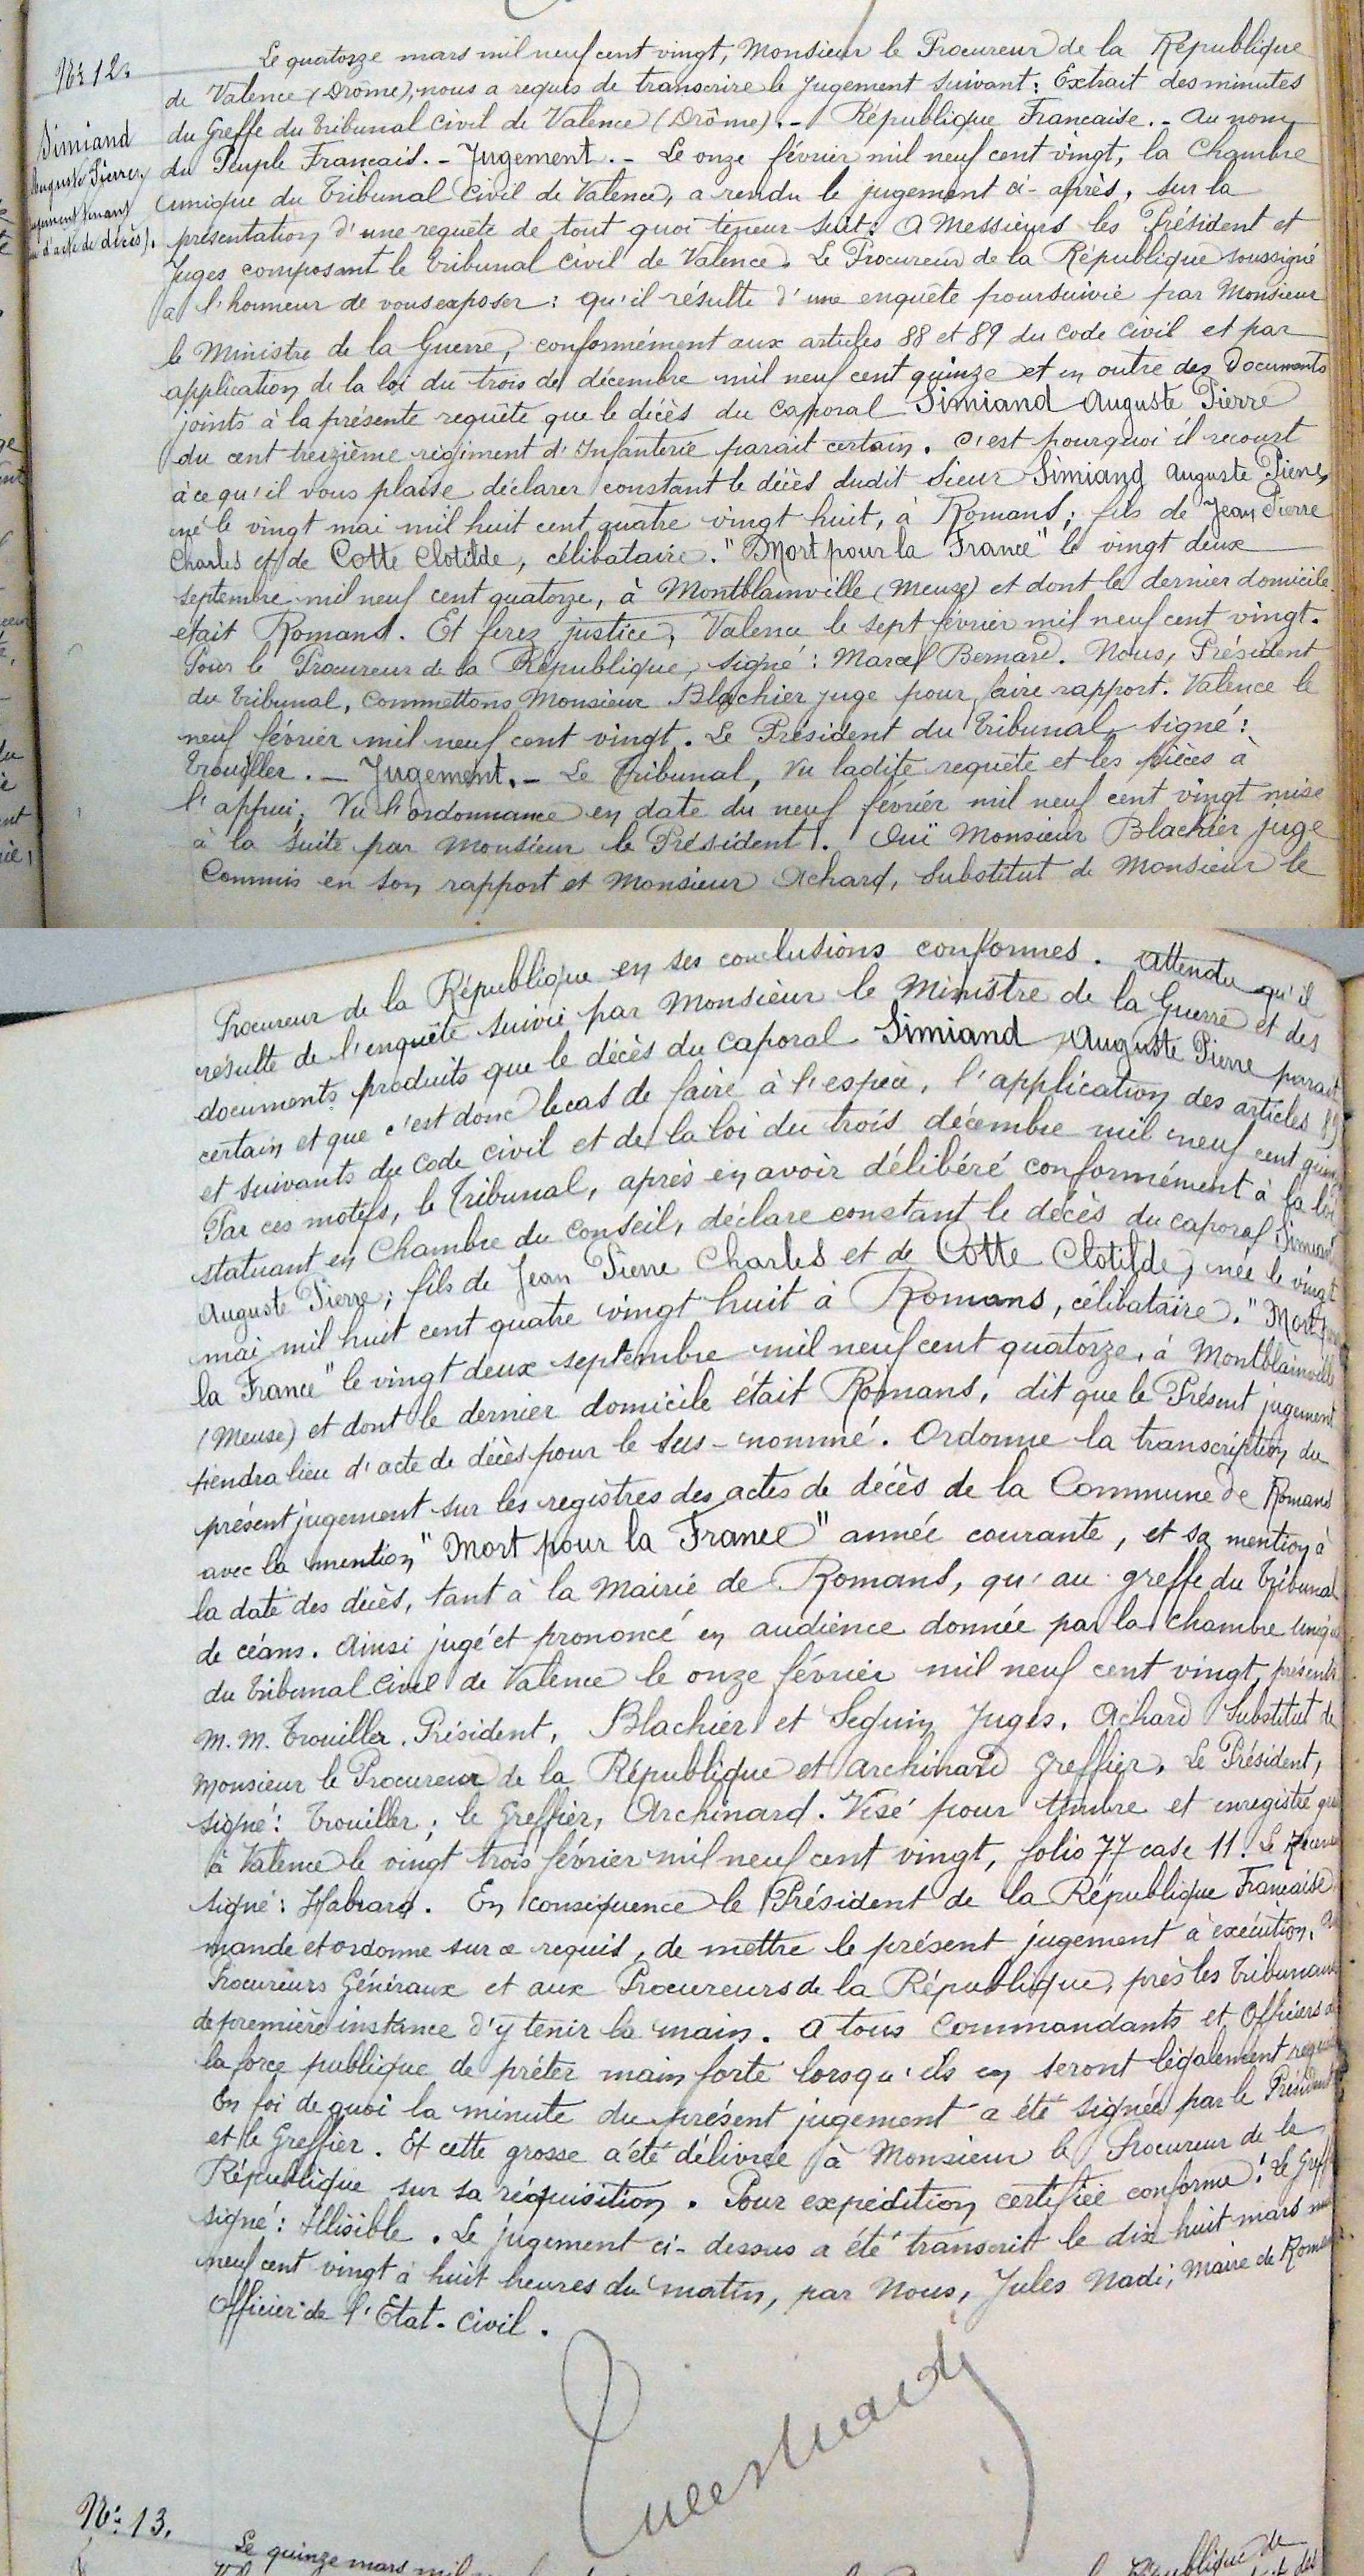 Nº 12.
Simiand
Auguste Pierre
jugement tenant
d'acte de décès).
Le quatorze mars mil neuf cent vingt, Monsieur le Procureur de la République
de Valence (Drôme), nous a requis de transcrire le jugement suivant : Extrait des minutes
du Greffe du Tribunal Civil de Valence (Drôme). - République Francaise. - Au nom
du Peuple Francais. - Jugement. - Le onze février mil neuf cent vingt, la Chambre
unique du Tribunal Civil de Valence, a rendu le jugement ci-après, sur la
présentation d'une requête de tout quoi teneur suit : A Messieurs les Président et
Juges composant le Tribunal Civil de Valence. Le Procureur de la République soussigné
a l'honneur de vous exposer : qu'il résulte d'une enquête poursuivie par Monsieur
le Ministre de la Guerre, conformément aux articles 88 et 89 du Code Civil et par
application de la loi du trois de décembre mil neuf cent quinze et en outre des Documents
joints à la présente requête que le décès du Caporal Simiand Auguste Pierre
du cent treizième régiment d'Infanterie parait certain. C'est pourquoi il recourt
à ce qu'il vous plaise déclarer constant le décès dudit Sieur Simiand Auguste Pierre,
né le vingt mai mil huit cent quatre vingt huit, à Romans ; fils de Jean Pierre
Charles et de Cotte Clotilde, célibataire. "Mort pour la France" le vingt deux
septembre mil neuf cent quatorze, à Montblainville (Meuse) et dont le dernier domicile
était Romans. Et ferez justice, Valence le sept février mil neuf cent vingt.
Pour le Procureur de la République, signé : Marcel Bernard. Nous, Président
du Tribunal, commettons Monsieur Blachier juge pour faire rapport. Valence le
neuf février mil neuf cent vingt. Le Président du Tribunal, signé :
Trouiller. - Jugement. - Le Tribunal, Vu ladite requête et les pièces à
l'appui, Vu l'ordonnance en date du neuf février mil neuf cent vingt mise
à la suite par Monsieur le Président. Ouï Monsieur Blachier juge
Commis en son rapport et Monsieur Achard, Substitut de Monsieur le
Procureur de la République en ses conclusions conformes. Attendu qu'il
résulte de l'enquête suivie par Monsieur le Ministre de la Guerre et des
documents produits que le décès du Caporal Simiand Auguste Pierre parait
certain et que c'est donc le cas de faire à l'espèce, l'application des articles 89
et suivants du Code Civil et de la loi du trois décembre mil neuf cent quinze
Par ces motifs, le Tribunal, après en avoir délibéré conformément à la loi
statuant en Chambre du Conseil, déclare constant le décès du caporal Simiand
Auguste Pierre ; fils de Jean Pierre Charles et de Cotte Clotilde, née le vingt
mai mil huit cent quatre vingt huit à Romans, célibataire. "Mort pour
la France" le vingt deux septembre mil neuf cent quatorze, à Montblainville
(Meuse) et dont le dernier domicile était Romans, dit que le Présent jugement
tiendra lieu d'acte de décès pour le sus-nommé. Ordonne la transcription du
présent jugement sur les registres des actes de décès de la Commune de Romans
avec la mention "Mort pour la France" année courante, et sa mention à
la date des décès, tant à la Mairie de Romans, qu'au greffe du Tribunal
de céans. Ainsi jugé et prononcé en audience donnée par la Chambre unique
du Tribunal Civil de Valence le onze février mil neuf cent vingt, présents
M. M. Trouiller, Président, Blachier et Seguin Juges, Achard Substitut de
Monsieur le Procureur de la République et Archinard Greffier, Le Président,
signé : Trouiller ; le Greffier, Archinard. Visé pour timbre et enregistré
à Valence le vingt trois février mil neuf cent vingt, folio 77 case 11. Le Receveur
signé : Habrard. En conséquence le Président de la République Francaise
mande et ordonne sur ce requis, de mettre le présent jugement à exécution.
Procureurs Généraux et aux Procureurs de la République, près les Tribunaux
de première instance d'y tenir la main. A tous Commandants et Officiers de
la force publique de prêter main forte lorsqu'ils en seront légalement requis
En foi de quoi la minute du présent jugement a été signée par le Président
et le Greffier. Et cette grosse a été délivrée à Monsieur le Procureur de la
République sur sa réquisition. Pour expédition certifiée conforme : Le Greffier
signé : Illisible. Le jugement ci-dessus a été transcrit le dix huit mars mil
neuf cent vingt à huit heures du matin, par Nous, Jules Nadi, Maire de Romans
Officier de l'Etat-Civil.
Nº 13.
Le quinze mars mil
République de